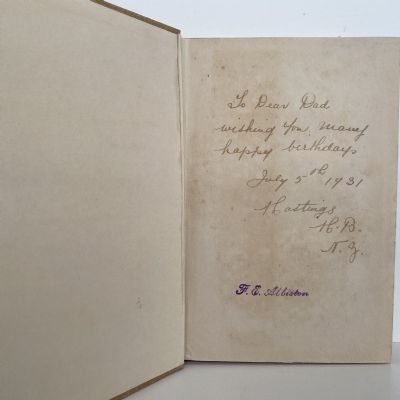 To Dear Dad
wishing you, many
happy birthdays
July 5th 1931
Hastings
H.B.
N.Z.
F. E. Albiston